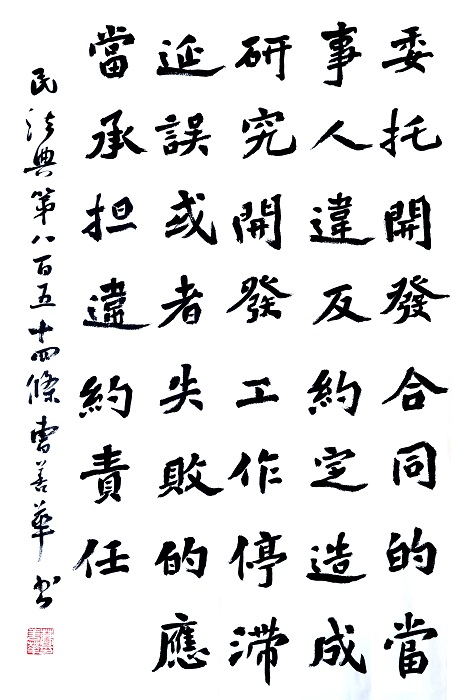 委托開發合同的當
事人違反約定造成
研究開發工作停滯
延誤或者失敗的應
當承担違約責任
民法典第八百五十四條曹善華书